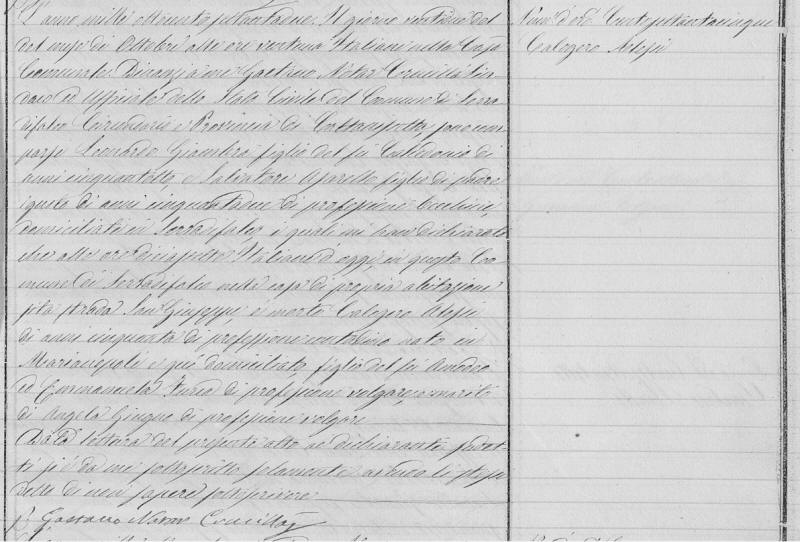 L'anno mille ottocento settantadue. Il giorno ventuno del
del mese di Ottobre alle ore ventuna Italiane nella Casa
Comunale. Dinanzi a me Gaetano Notar Crucillà Sin-
daco ed Uffiziale dello Stato Civile del Comune di Serra
difalco Circondario e Provincia di Caltanissetta, sono com
parsi Leonardo Giambra figlio del fu Calcedonio di
anni cinquantotto, e Salvatore figlio di padre
ignoto di anni cinquantadue di professione
domiciliati in Serradifalco, i quali mi han dichiarato
che alle ore diciasette Italiane d'oggi in questo Co-
mune di Serradifalco nella casa di propria abitazione
sita strada San Giuseppe è morto Calogero Alessi
di anni cinquanta di professione contadino nato in
Marianopoli e qui domiciliato figlio del fu Amedeo
ed Emmanuela Curto di professione volgare, e marito
di Angela Giugno di professione volgare
Data lettura del presente atto ai dichiaranti,
ti si è da me sottoscritto solamente avendo li stessi
detto di non sapere sottoscrivere
Gaetano Notar Crucillà
Num. d'ord. Centosettantacinque
Calogero Alessi